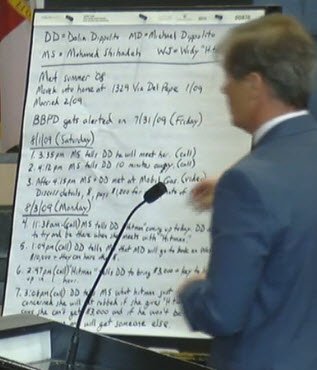 DD = Dalia Dippolito MD = Michael Dippolito
MS = Mohamed Shihadeh WJ = Widy "H
Met summer '08
Moved into home at 1329 Via Del Pepe 1/09
Married 2/09
BBPD gets alerted on 7/31/09 (Friday)
8/1/09 (Saturday)
1. 3:35pm MS tells DD he will meet her. (call)
2. 4:12pm MS tells DD 10 minutes away. (call)
3. After 4:15pm MS + DD met at Mobil Gas. (video)
Discuss details, $, pays $1,200 of
8/3/09 (Monday)
4. 11:38am (call) MS tells DD "hitman" coming up today. DD
to try and be there when she meets with "Hitman"
5. 1:09pm (call) DD tells that MD will go to bank on
6. 2:47pm (call) "Hitman" tells DD to bring $3,000 + key to
up in 1 hour.
7. 3:06pm (call) DD MS what hitman just
concerned she will get robbed if she gives "H
she can't get $3,000 and if he won't
will get someone else.